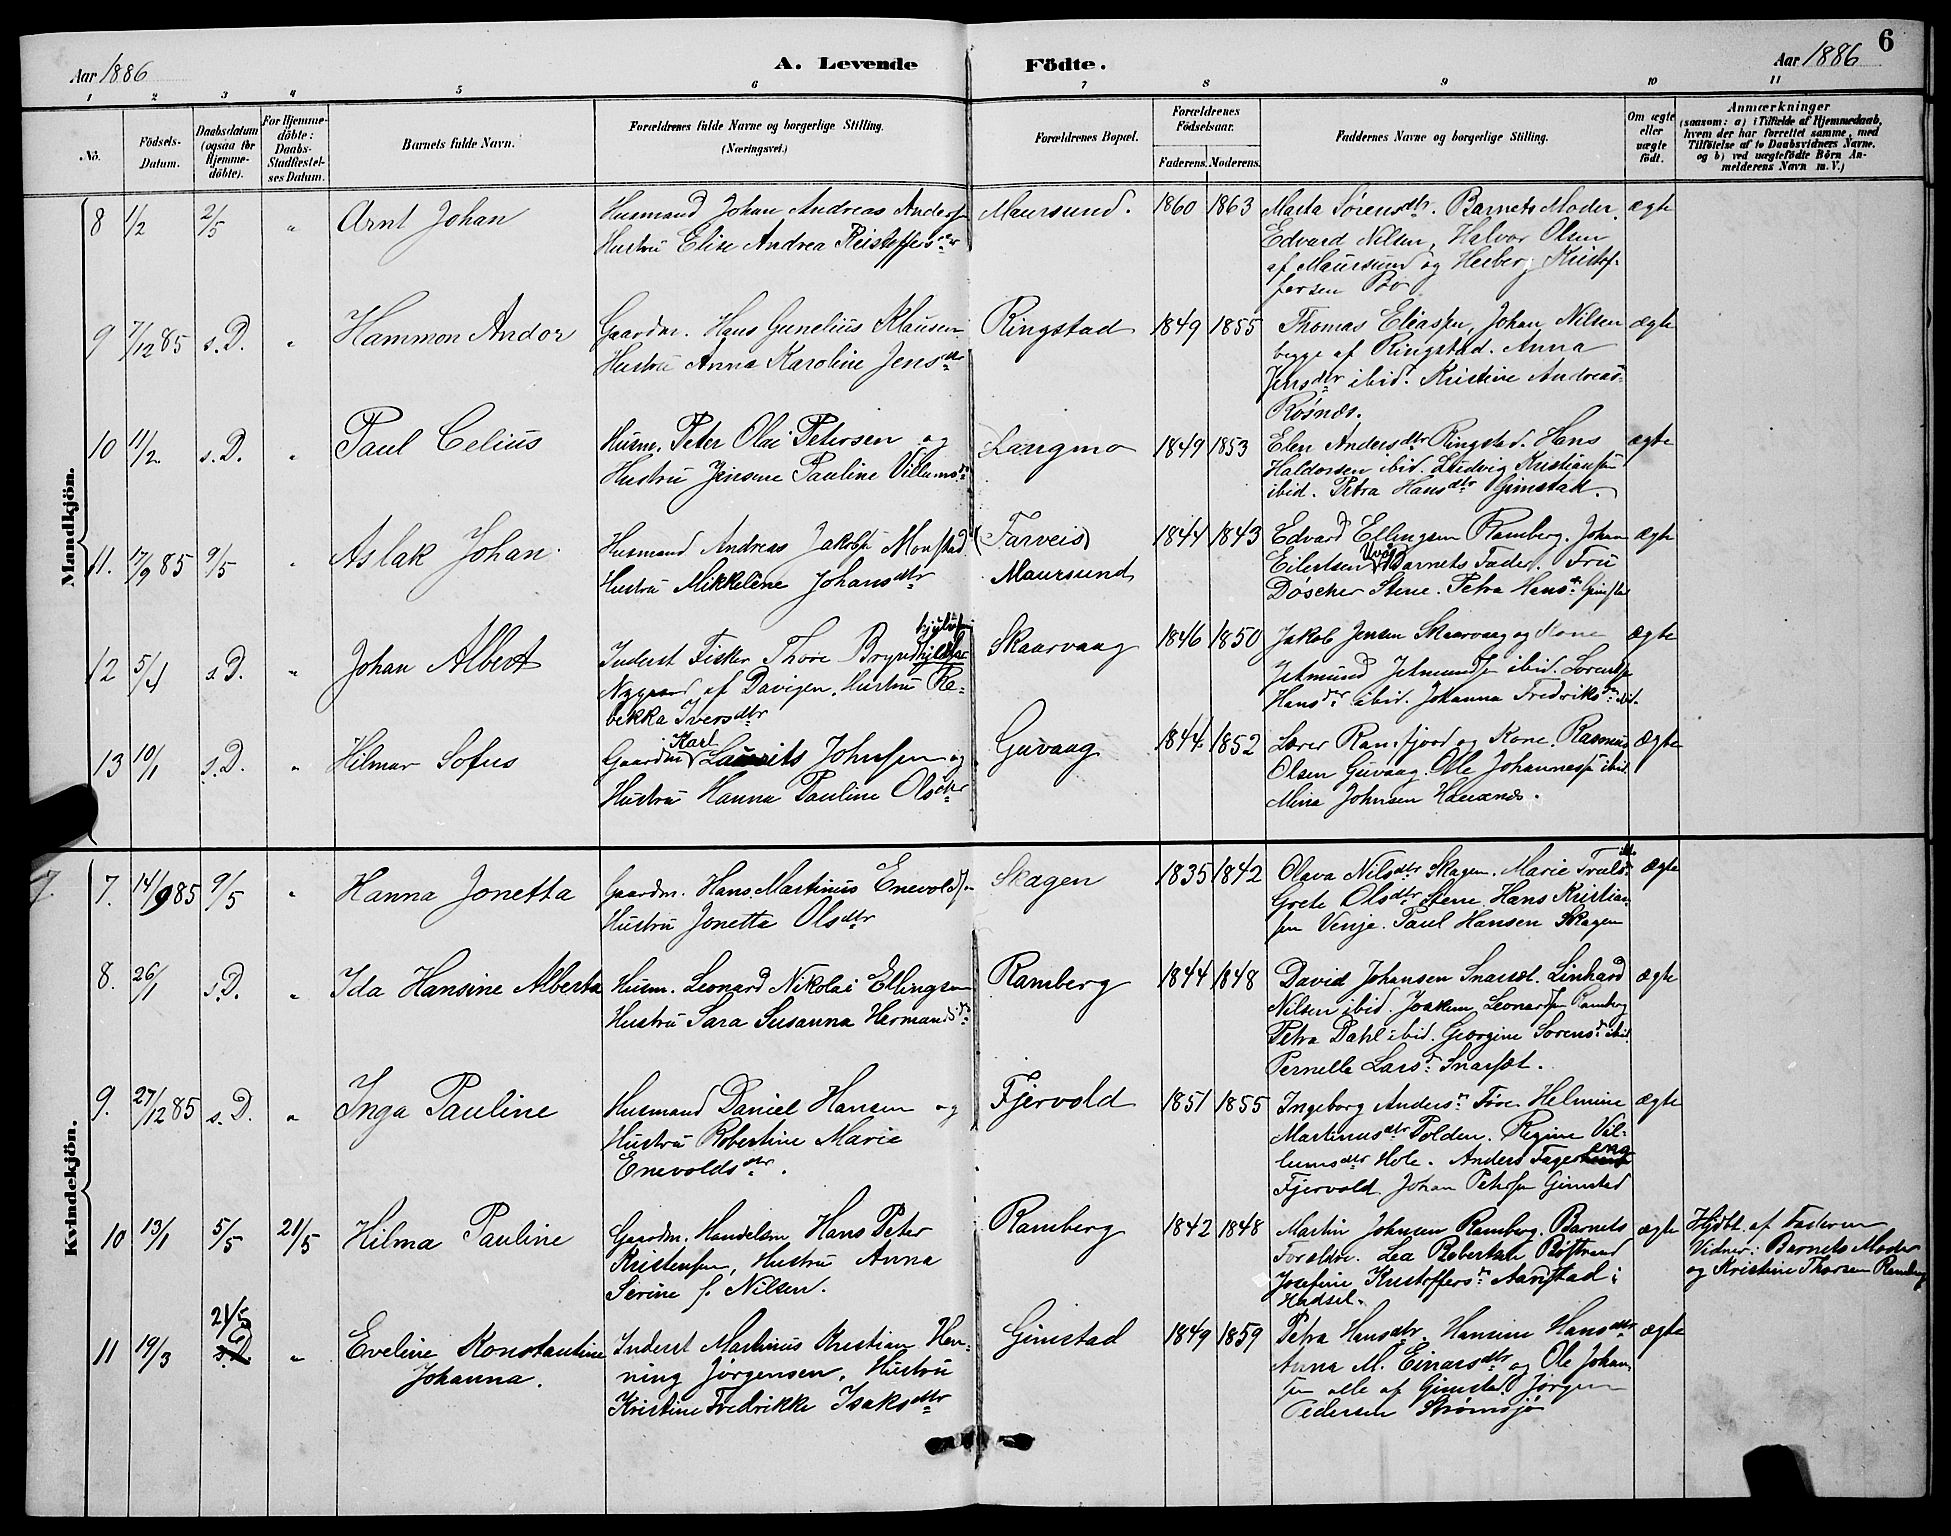 6
Aar 1886
A. Levende Födte.
Aar 1886
1 2 3 4 5 6 7 8 9 10 11
No.
Födsels-Datum.
Daabsdatum (ogsaa for Hjemme-döbte).
For Hjemme-döbte: Daabs-Stadfæstel-ses Datum.
Barnets fulde Navn.
Forældrenes fulde Navne og borgerlige Stilling.
(Næringsvei.)
Forældrenes Bopæl.
Forældrenes Födselsaar.
Faderens. Moderens.
Faddernes Navne og borgerlige Stilling.
Om ægte eller uægte født.
Anmærkninger
(saasom: a) i Tilfælde af Hjemmedaab,
hvem der har forrettet samme, med
Tilföielse af to Daabsvidners Navne,
og b) ved uægtefödte Börn An-
melderens Navn m. V.)
Mandkjön.
8 1/2 2/5 " Arnt Johan
Husmand Johan Andreas Anders
Hustru Elise Andrea Kristoffersdtr
Maursund. 1860 1863
Marta Sørensdtr. Barnets Moder.
Edvard Nilsen, Halvor Olsen
af Maursund og Herberg Kristof-
fersen
ægte
9 7/12 85 s.D. " Hammon Andor
Gaardm. Hans Gunelius Klausen
Hustru Anna Karoline Jensdtr
Ringstad 1849 1855
Thomas Eliassen, Johan Nilsen
begge af Ringstad. Anna
Jensdtr ibid. Kristine Andreas
Rösnes.
ægte
10 11/2 s.D. " Paul Celius
Husm. Peter Olai Petersen og
Hustru Jensine Pauline Villumsdtr
Langmo 1849 1853
Elen Andersdtr Ringstad. Hans
Haldorsen ibid. Ludvig Kristiansen
ibid. Petra Hansdtr Gimstad.
ægte
11. 17/9 85 9/5 " Aslak Johan
Husmand Andreas Jakobs Monstad
Hustru Mikkeline Johansdtr
(Farveis)
Maursund
1844 1843
Edvard Ellingsen Ramberg. Johan
Eilertsen Barnets Fader. Fru
Døscher Stene. Petra Hansdtr Gimstad
ægte
12 5/4 s.D. " Johan Albert
Inderst Fisker Thore
Nygaard af Davigen. Hustru Re-
bekka Iversdtr
Skaarvaag 1846 1850
Jakob Jensen Skaarvaag og Kone
Jetmund Jetmundsen ibid. Lorentse
Hansdtr ibid. Johanna Fredriksdtr ibid.
ægte
13 10/1 s.D. " Hilmar Sofus
Gaardm Karl Laurits Johnsen og
Hustru Hanna Pauline Olsdtr
Guvaag 1844 1852
Lærer Ramfjord og Kone. Rasmus
Olsen Guvaag. Ole Johannessen ibid.
Mina Johnsen Hauknes.
ægte
Kvindekjön.
7. 7. 14/9 85 9/5 " Hanna Jonetta
Gaardm. Hans Martinus Enevoldsen
Hustru Jonetta Olsdtr
Skagen 1835 1842
Olava Nilsdtr Skagen. Marie Truls
Grete Olsdtr Stene. Hans Kristian-
sen Vinje. Paul Hansen Skagen
ægte
8. 26/1 s.D. " Ida Hansine Alberta
Husm. Leonard Nikolai Ellingsen
Hustru Sara Susanna Hermansdtr
Ramberg 1844 1848
David Johansen Snarset. Linhard
Nilsen ibid. Joakim Leonardsen Ramberg
Petra Dahl ibid. Georgine Sørensd ibid.
Pernelle Larsd Snarset.
ægte
9. 27/12 85 s.D. " Inga Pauline
Husmand Daniel Hansen og
Hustru Robertine Marie
Enevoldsdtr.
Fjervold 1851 1855
Ingeborg Andersdtr Føre. Helmine
Martinusdtr Polden. Regine Vil-
lumsdtr Hole. Anders Fagereng
Fjervold. Johan Petersen Gimstad
ægte
10 13/1 5/5 21/5 Hilma Pauline
Gaardm. Handelsm. Hans Peter
Kristensen, Hustru Anna
Serine f. Nilsen.
Ramberg 1842 1848
Martin Johnsen Ramberg. Barnets
Forældre. Lea Robertsen Røstrand
Josefine Kristoffersdtr Aarstad i
Hadsel.
ægte
Hjdbt af Faderen
Vidner: Barnets Moder
og Kristine Thorsen Ramberg
11 19/3 21/5 s.D. " Eveline Konstantine
Johanna.
Inderst Martinus Kristian Hen-
ning Jørgensen, Hustru
Kristine Fredrikke Isaksdtr
Gimstad 1849 1859
Petra Hansdtr. Hansine Hansdtr
Anna M. Einarsdtr og Ole Johan-
sen alle af Gimstad. Jørgen
Pedersen Strømsjø
ægte